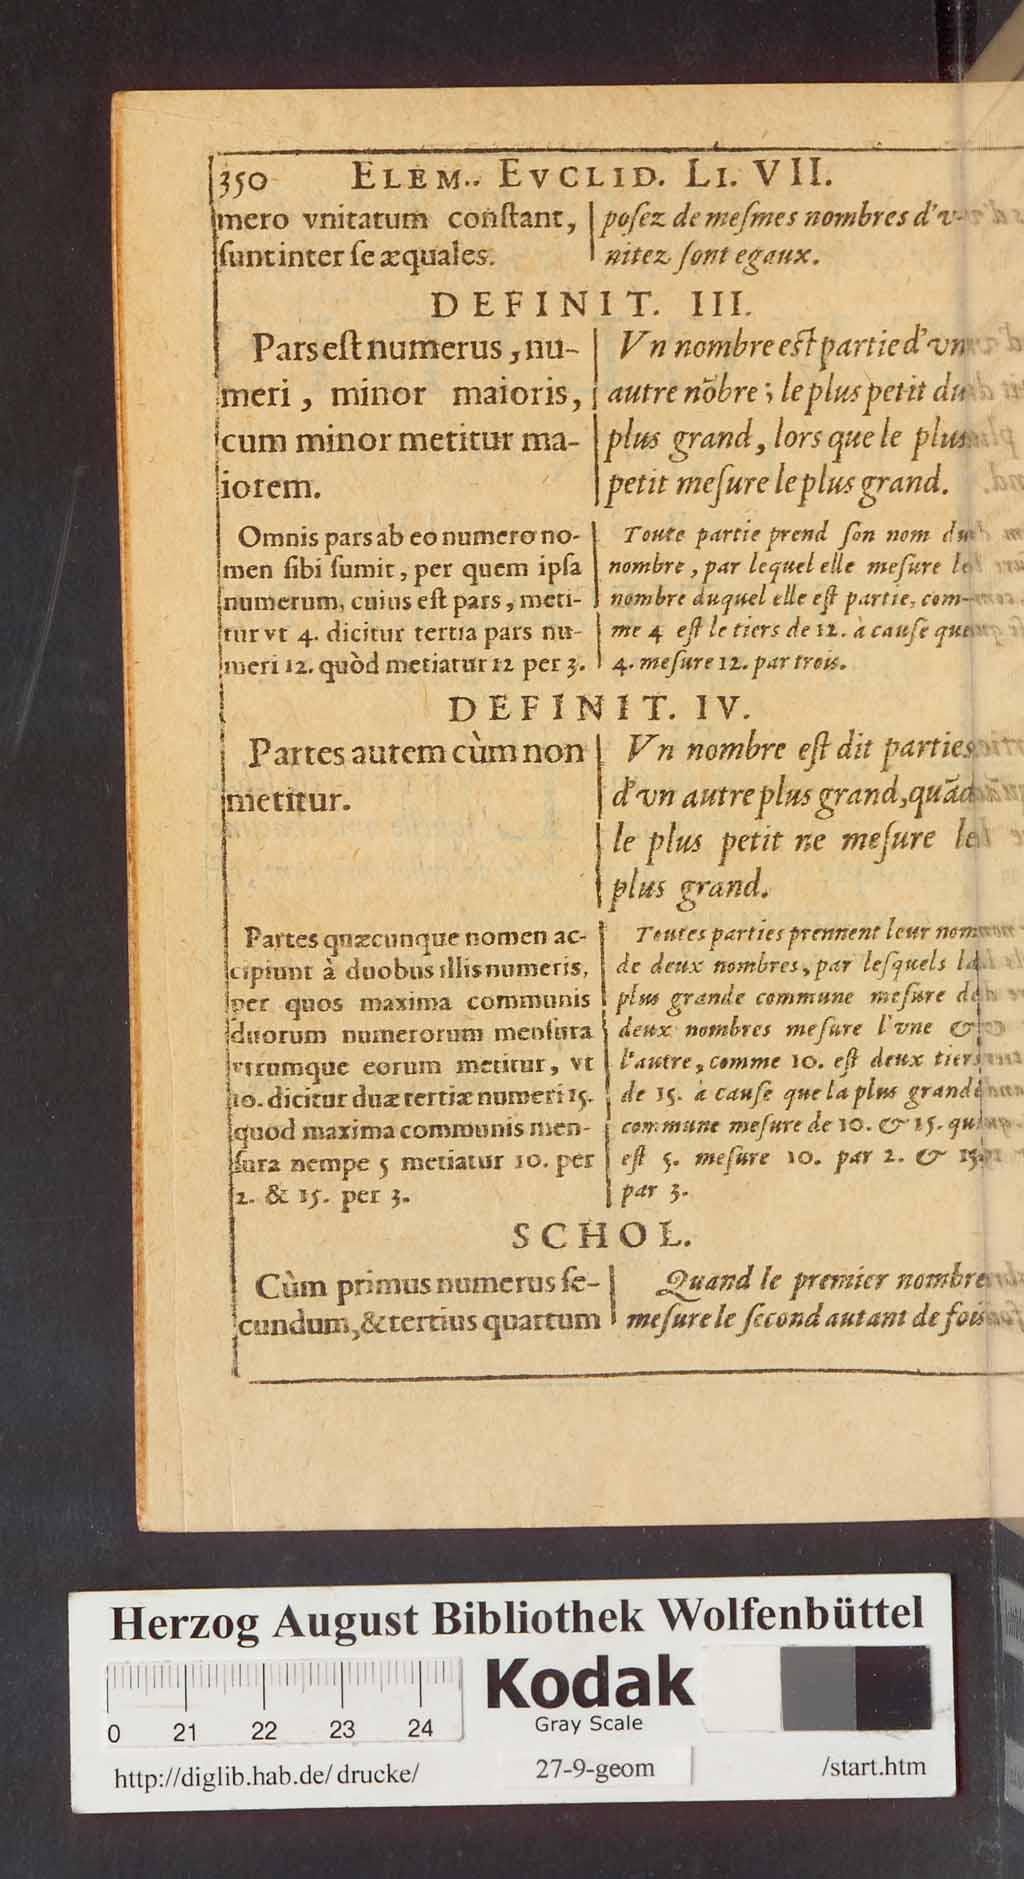 350 ELEM.. EVCLID. LI. VII.
mero vnitatum conſtant,
ſunt inter ſe æquales.
poſez de meſmes nombres d'v-
nitez ſont egaux.
DEFINIT. III.
Pars eſt numerus, nu-
meri, minor maioris,
cum minor metitur ma-
iorem.
Vn nombre eſt partie d'vn
autre nõbre; le plus petit du
plus grand, lors que le plus
petit meſure le plus grand.
Omnis pars ab eo numero no-
men ſibi ſumit, per quem ipſa
numerum, cuius eſt pars, meti-
tur vt 4. dicitur tertia pars nu-
meri 12. quòd metiatur 12 per 3.
Toute partie prend ſon nom du
nombre, par lequel elle meſure le
nombre duquel elle eſt partie, com-
me 4 eſt le tiers de 12. à cauſe que
4. meſure 12. par trois.
DEFINIT. IV.
Partes autem cùm non
metitur.
Vn nombre eſt dit parties
d'vn autre plus grand, quãd
le plus petit ne meſure le
plus grand.
Partes quæcunque nomen ac-
cipiunt à duobus illis numeris,
per quos maxima communis
duorum numerorum menſura
vtrumque eorum metitur, vt
10. dicitur duæ tertiæ numeri 15.
quod maxima communis men-
ſura nempe 5 metiatur 10. per
2. & 15. per 3.
Toutes parties prennent leur nom
de deux nombres, par leſquels la
plus grande commune meſure de
deux nombres meſure l'vne &
l'autre, comme 10. eſt deux tiers
de 15. à cauſe que la plus grande
commune meſure de 10. & 15. qui
eſt 5. meſure 10. par 2. & 15.
par 3.
SCHOL.
Cùm primus numerus ſe-
cundum, & tertius quartum
Quand le premier nombre
meſure le ſecond autant de fois
Herzog August Bibliothek Wolfenbüttel
Kodak
Gray Scale
0 21 22 23 24
http://diglib.hab.de/drucke/ 27-9-geom /start.htm